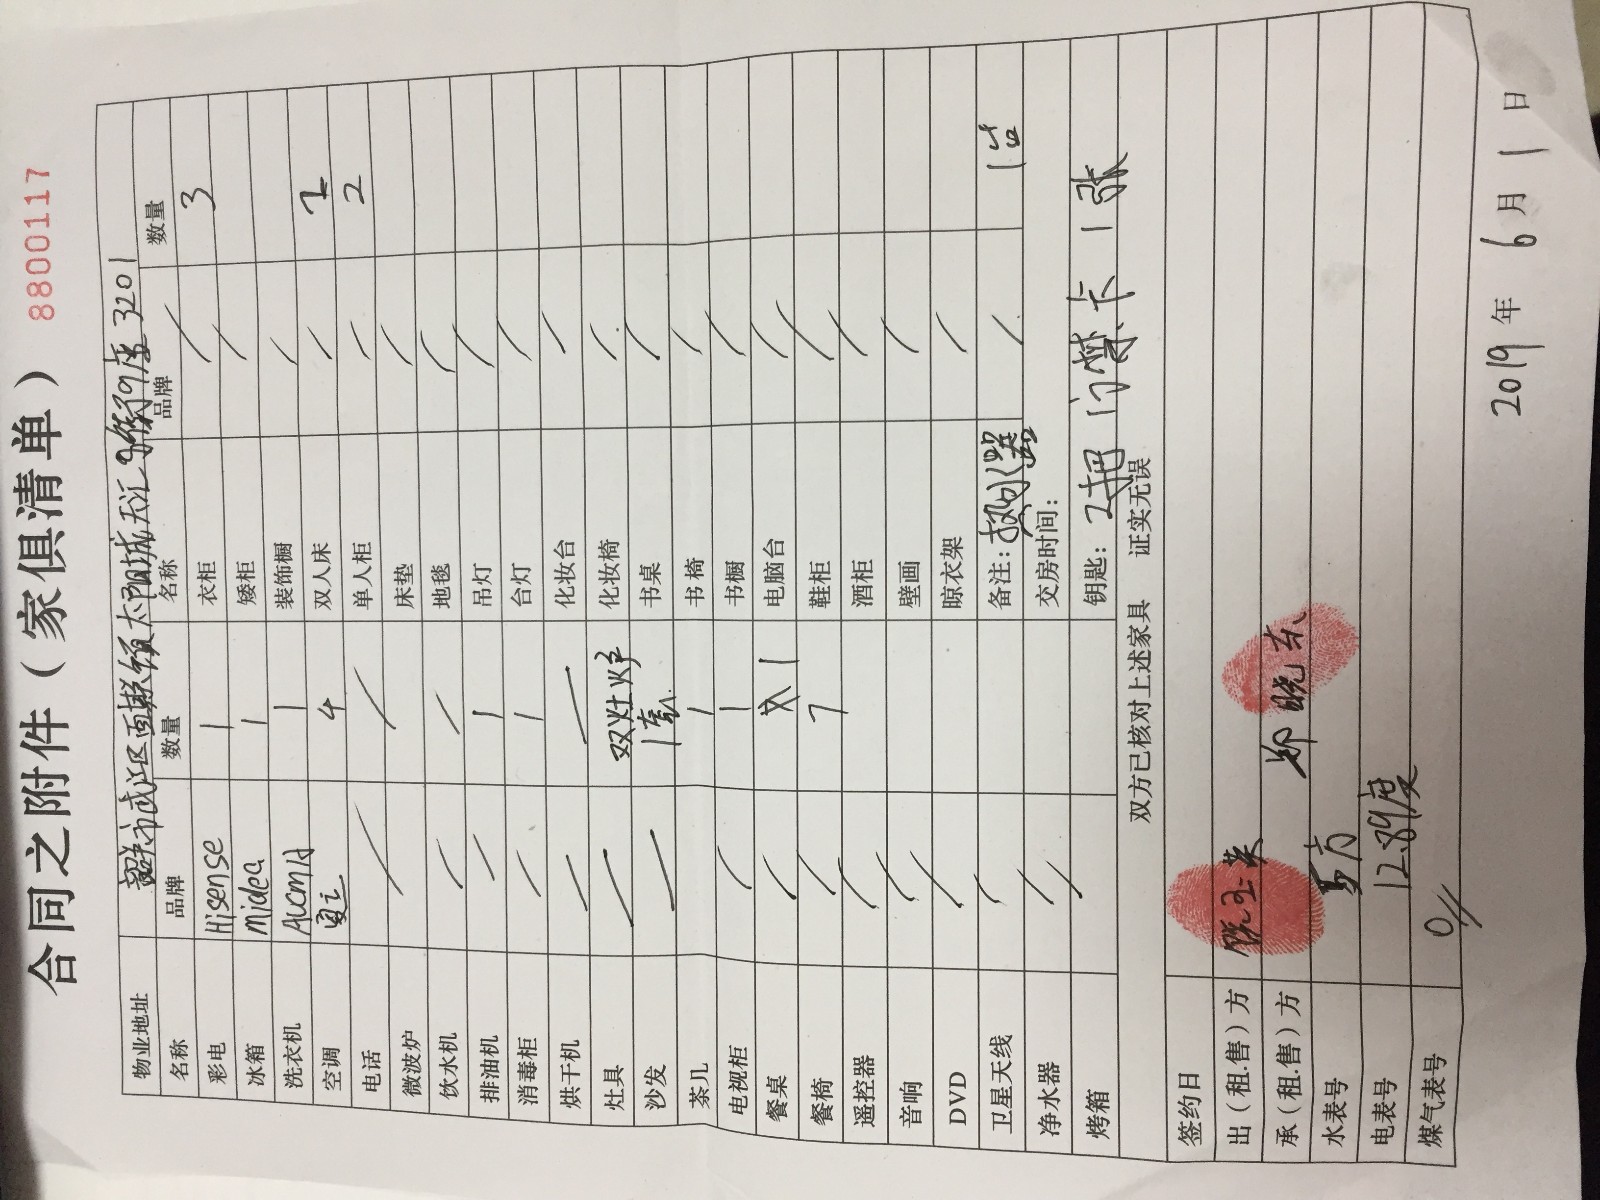 合同之附件（家俱清单） 8800117
物业地址 韶关市武江区西联镇太阳城天汇 9座3201
名称 品牌 数量 名称 品牌 数量
彩电 Hisense 1 衣柜 / 3
冰箱 midea 1 矮柜 /
洗衣机 Aucma 1 装饰橱 /
空调 4 双人床 /
电话 / / 单人柜 / 2
微波炉 床垫 /
饮水机 / / 地毯 /
排油机 / 1 吊灯 /
消毒柜 / 1 台灯 /
烘干机 / / 化妆台 /
灶具 / 双灶炉 化妆椅 /
沙发 / 1套 书桌 /
茶几 1 书椅 /
电视柜 / 1 书橱 /
餐桌 / 1 电脑台 /
餐椅 / 7 鞋柜 /
遥控器 / 酒柜 /
音响 / 壁画 /
DVD / 晾衣架 /
卫星天线 / 备注：热水器 / 1台
净水器 / 交房时间：
烤箱 / 钥匙：2把 门禁卡1张
双方已核对上述家具 证实无误
签约日
出（租.售）方
承（租.售）方 郑晓东
水表号 5方
电表号 1289度
煤气表号 0//
2019年6月1日